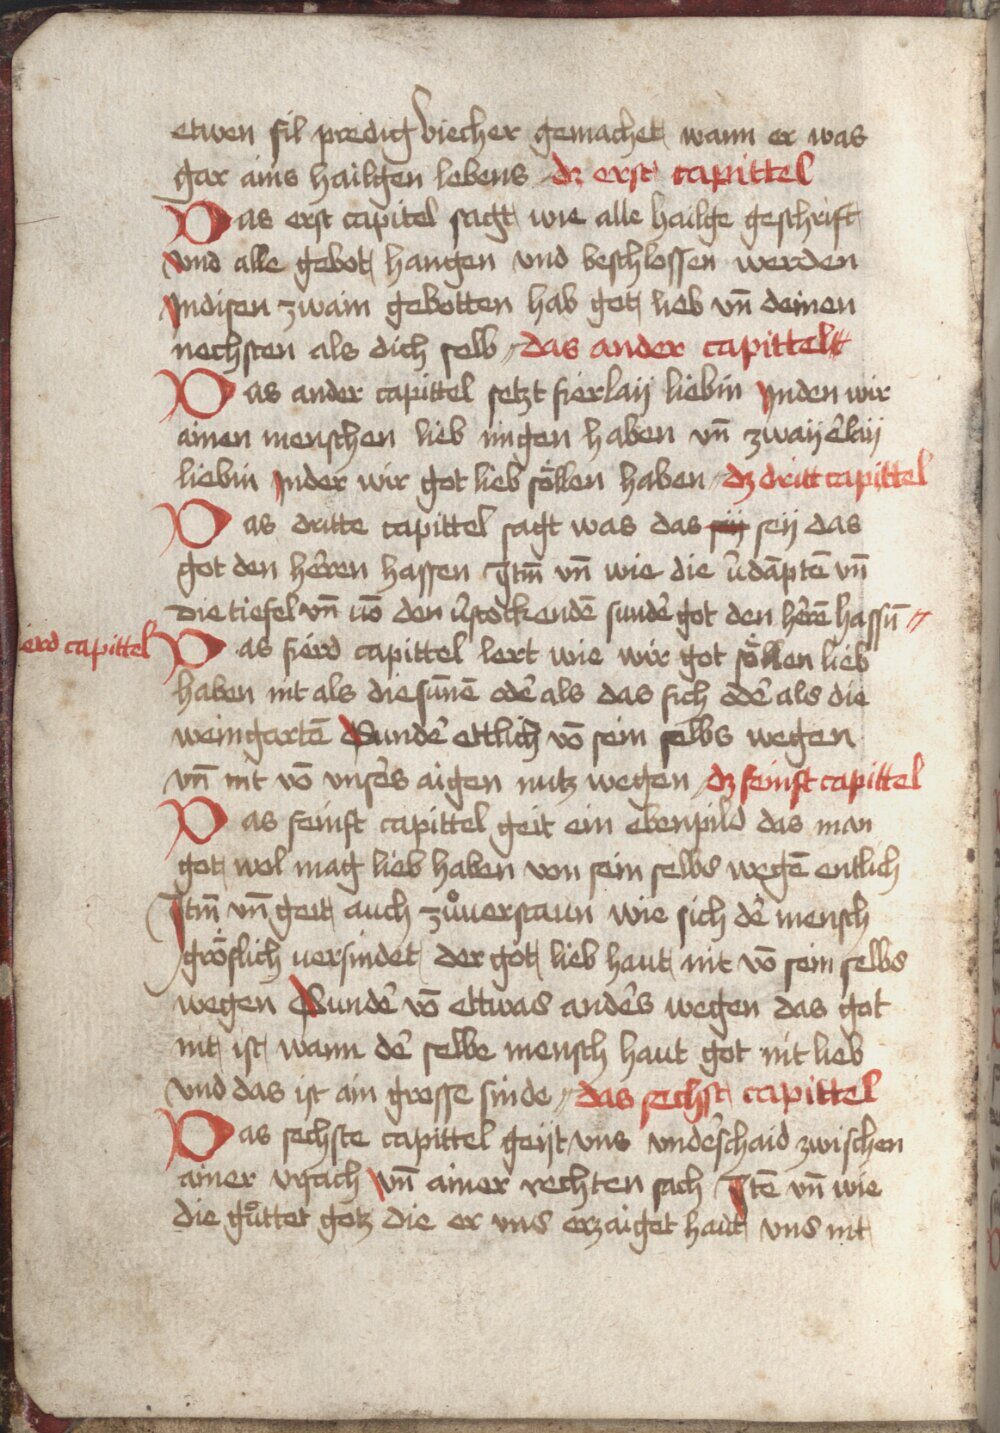 etwen fil predig biecher gemachet wann er was
gar ains hailgen lebens dz erst capittel
Das erst capitel sagt wie alle hailge geschrift
vnd alle gebot hangen vnd beschlossen werden
Jndisen zwain gebotten hab got lieb vn̄ deinen
nechsten als dich selb das ander capittel
Das ander capittel setzt fierlaÿ liebin Jnden wir
ainen menschen lieb mngen haben vn̄ zwaÿerlaÿ
liebin Jnder wir got lieb söllen haben dz dritt capittel
Das dritte capittel sagt was das seÿ das
got den herren hassen Jtm̄ vn̄ wie die v̉dāptē vn̄
die tiefel vn̄ uō den v̉stockendē sunder got den herē hassn̄
ierd capittel
Das fierd capittel lert wie wir got söllen lieb
haben nit als die sun̄nē oder als das fich oder als die
weingartē Sunder ettlich vō sein selbs wegen
vn̄ nit vō vnsers aigen nutz wegen dz feinft capittel
Das feinft capittel geit ein ebenpild das man
got wol mag lieb haben von sein selbs wegē entlich
Jtm̄ vn̄ geit auch zůuerstaun wie sich der mensch
gröslich uersindet der got lieb haut nit vō sein selbs
wegen Sunder vō ettwas anders wegen das got
nit ist wann der selbe mensch haut got nit lieb
vnd das ist ain grosse sinde das sechst capittel
Das sechste capittel geÿst vns vnderschaid zwischen
ainer vrsach vn̄ ainer rechten sach Jtē vn̄ wie
die gůttet gotz die er vns erzaiget haut vns nit